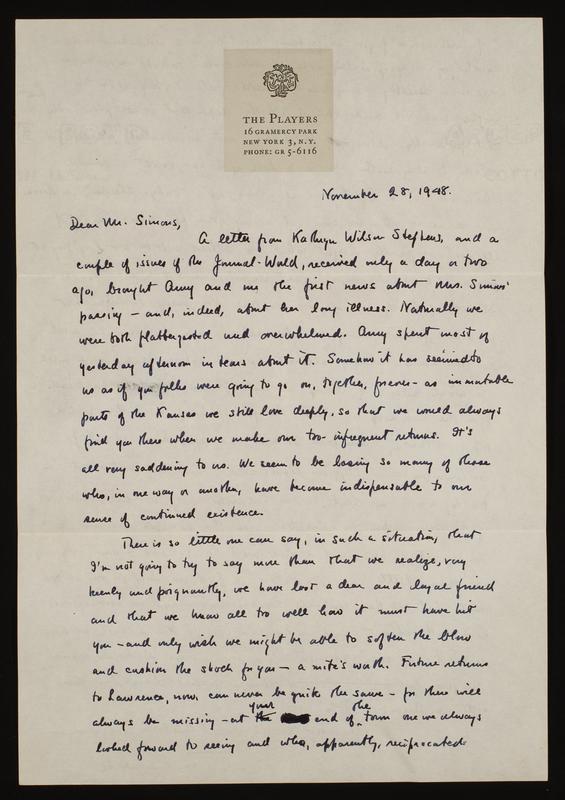 THE PLAYERS
16 GRAMERCY PARK
NEW YORK 3, N.Y.
PHONE: GR 5-6116
November 28, 1948.
Dear Mr. Simons,
A letter from Kathryn Wilson Stephens, and a
couple of issues of the Journal-World, received only a day or two
ago, brought Amy and me the first news about Mrs. Simons'
passing — and, indeed, about her long illness. Naturally we
were both flabbergasted and overwhelmed. Amy spent most of
yesterday afternoon in tears about it. Somehow it has seemed to
us as if you folks were going to go on, together, forever - as immutable
parts of the Kansas we still love deeply, so that we would always
find you there when we make our too-infrequent returns. It's
all very saddening to us. We seem to be losing so many of those
who, in one way or another, have become indispensable to our
sense of continued existence.
There is so little one can say, in such a situation, that
I'm not going to try to say more than that we realize, very
keenly and poignantly, we have lost a dear and loyal friend
and that we know all too well how it must have hit
you — and only wish we might be able to soften the blow
and cushion the shock for you — a mite's worth. Future returns
to Lawrence, now, can never be quite the same — for there will
always be missing — at your end of the town one we always
looked forward to seeing and who, apparently, reciprocated